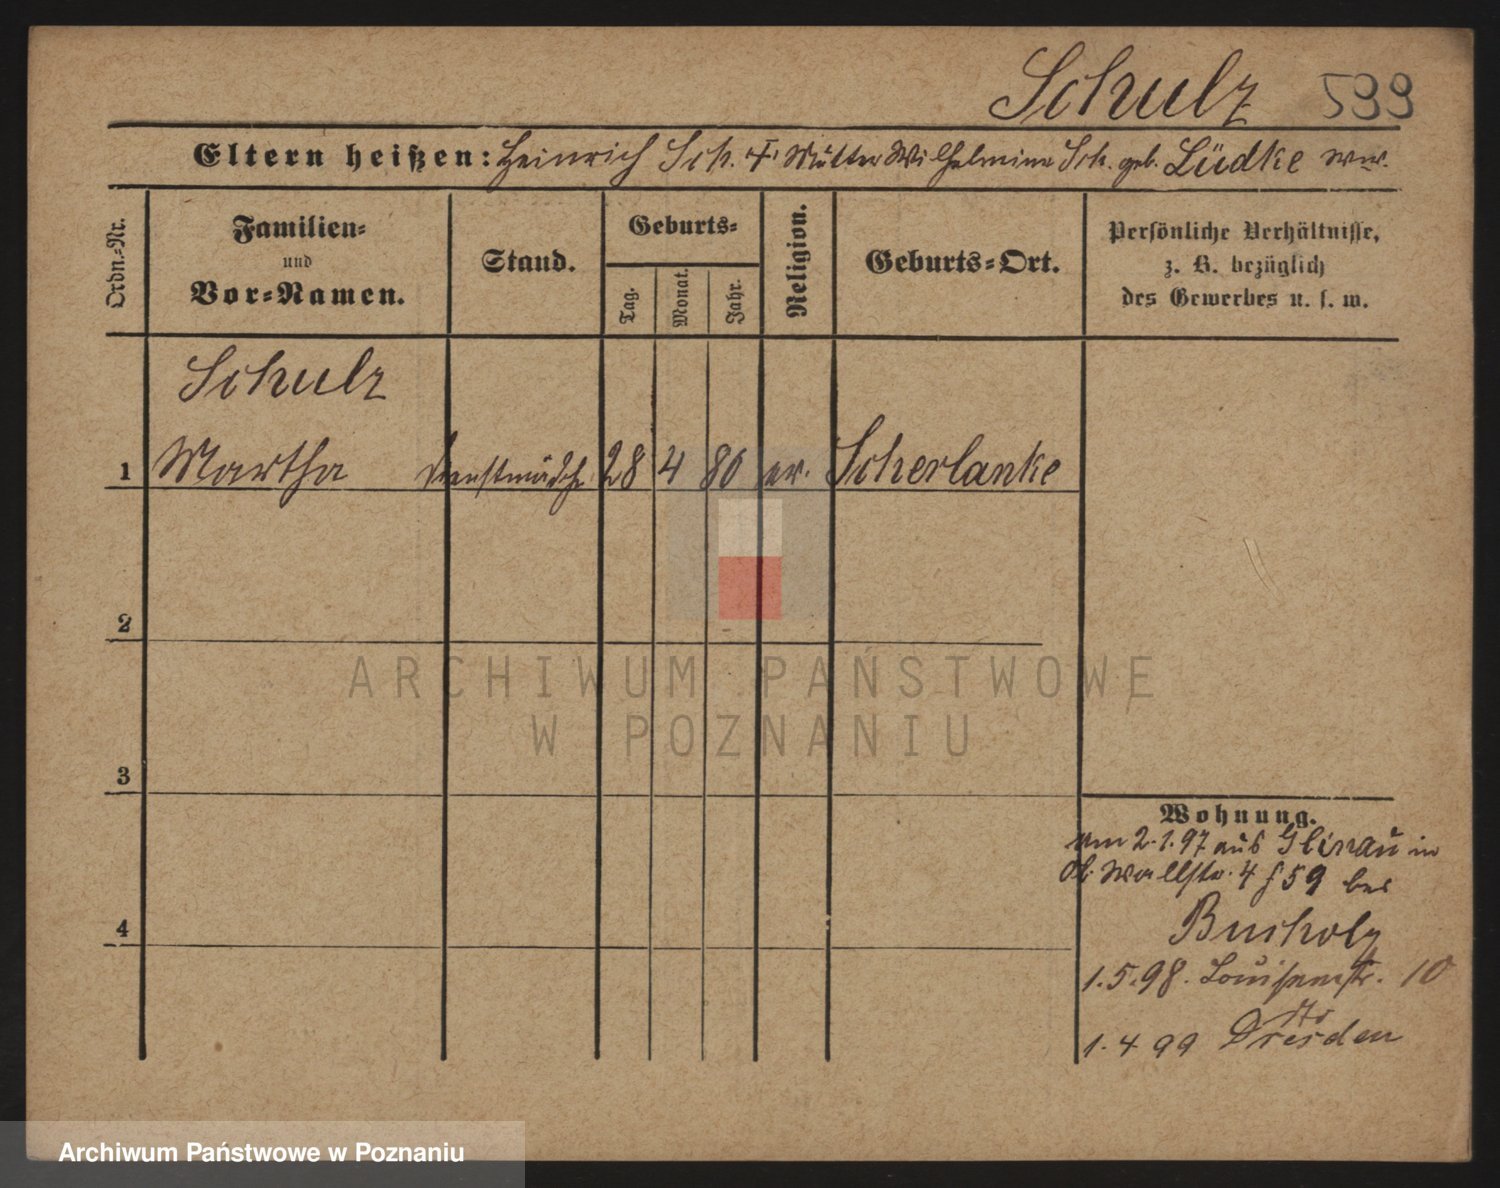 Schulz 599
Eltern heißen: Heinrich Sch. †. Mutter Wilhelmine Sch. geb. Lüdke ww.
Ordn.-Nr.
Familien-
und
Vor-Namen.
Stand.
Geburts-
Tag.
Monat.
Jahr.
Religion.
Geburts-Ort.
Persönliche Verhältnisse,
z. B. bezüglich
des Gewerbes u. s. w.
Schulz
1 Martha Dienstmädch. 28 4 80 ev. Scherlanke
2
ARCHIWUM PAŃSTWOWE
W POZNANIU
3
Wohnung.
am 2.1.97 aus Glinau in
Wallstr. 4 f 59 bei
4
Bucholz
1.5.98. Louisenstr. 10
1.4 99 Dresden
Archiwum Państwowe w Poznaniu